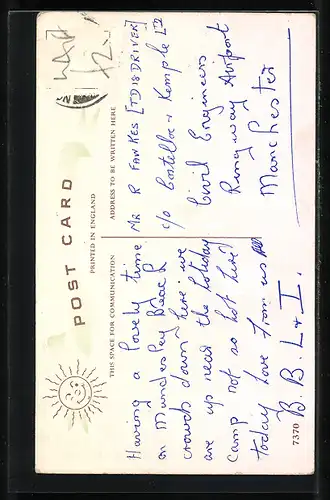 POST CARD
PRINTED IN ENGLAND
THIS SPACE FOR COMMUNICATION
ADDRESS TO BE WRITTEN HERE
Having a lovely time
on Mundesley Beach
crowds down here we
are up near the holiday
Camp not so hot here
today love from us all
B. B. L & I.
MR R FAWKES [TD18 DRIVER]
c/o Costelloe & Kemple LTD
Civil Engineers
Ringway Airport
Manchester
7370